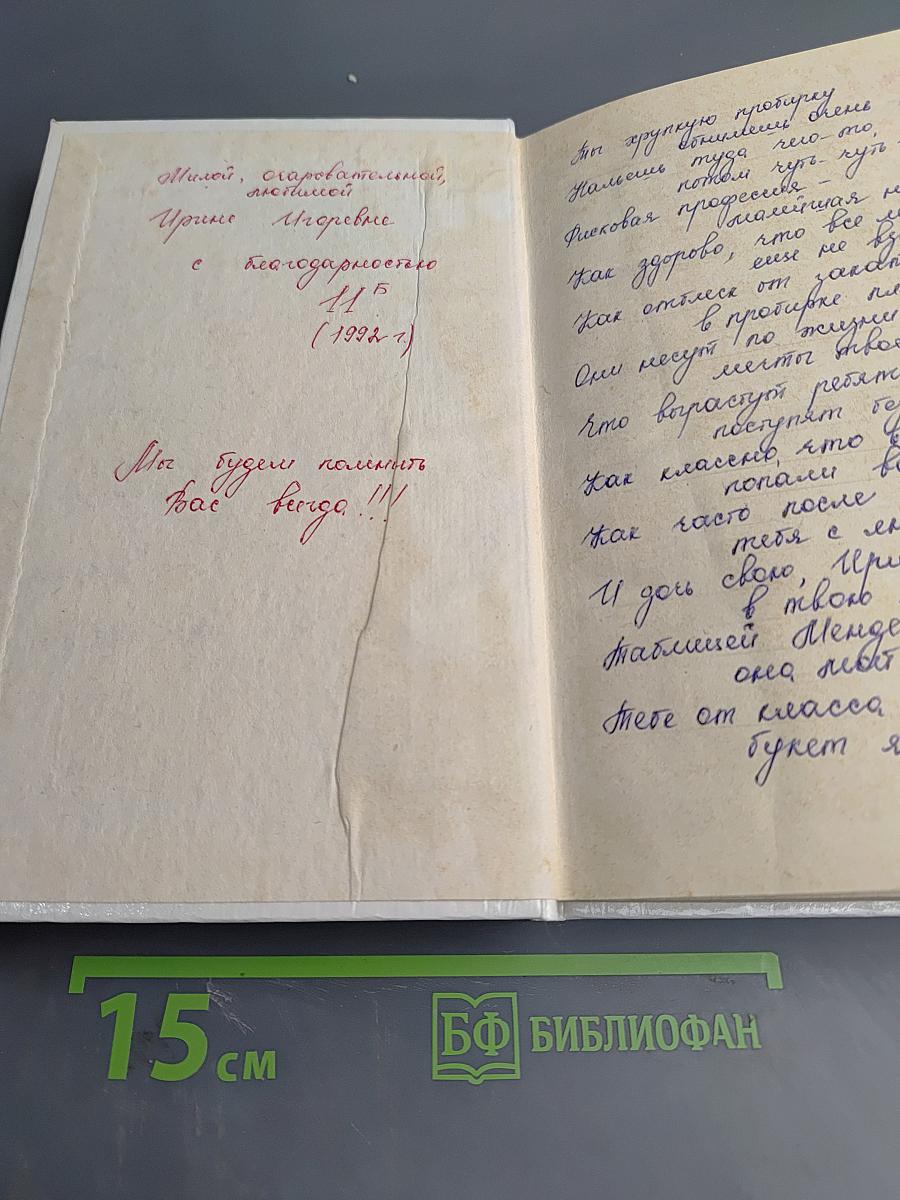 Милой, очаровательной,
любимой
Ирине Игоревне
с благодарностью
11 Б
(1992 г.)
Мы будем помнить
Вас всегда!!!
Ты хрупкую пробирку
обнимешь очень
Нальёшь туда чего-то,
потом чуть-чуть
Рисковая профессия –
малейшая
Как здорово, что все
еще не
Как отблеск от
в пробирке
Они несут по жизни
мечты
Что вырастут
поступят
Как классно, что
попали
Как часто после
тебя с
И дочь свою,
в твою
Таблицей
она
Тебе от класса
букет
15 см
БФ БИБЛИОФАН